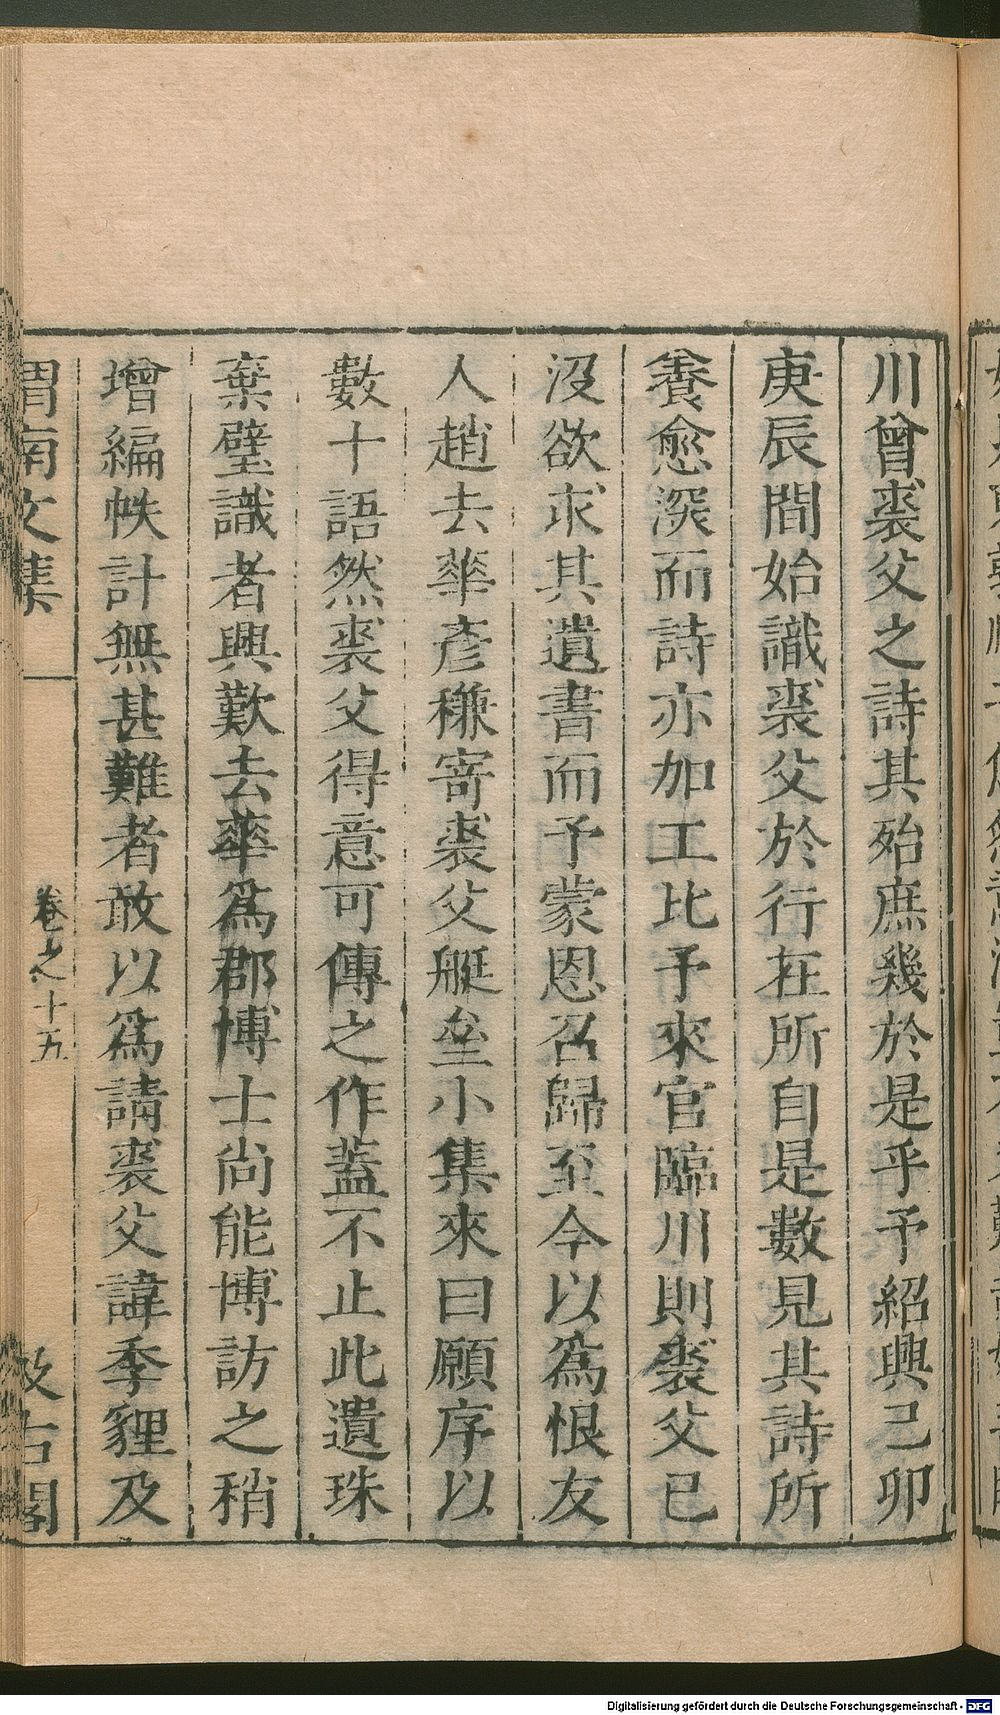 川曾裘父之詩其殆庶幾於是乎予紹興己卯
庚辰間始識裘父於行在所自是數見其詩所
養愈深而詩亦加工比予來官臨川則裘父已
沒欲求其遺書而予蒙恩召歸至今以爲恨友
人趙去華彥稴寄裘父艇齋小集來曰願序以
數十語然裘父得意可傳之作蓋不止此遺珠
棄璧識者興歎去華爲郡博士尙能博訪之稍
增編帙計無甚難者敢以爲請裘父諱季貍及
渭南文集
卷之十五
汲古閣
Digitalisierung gefördert durch die Deutsche Forschungsgemeinschaft - DFG